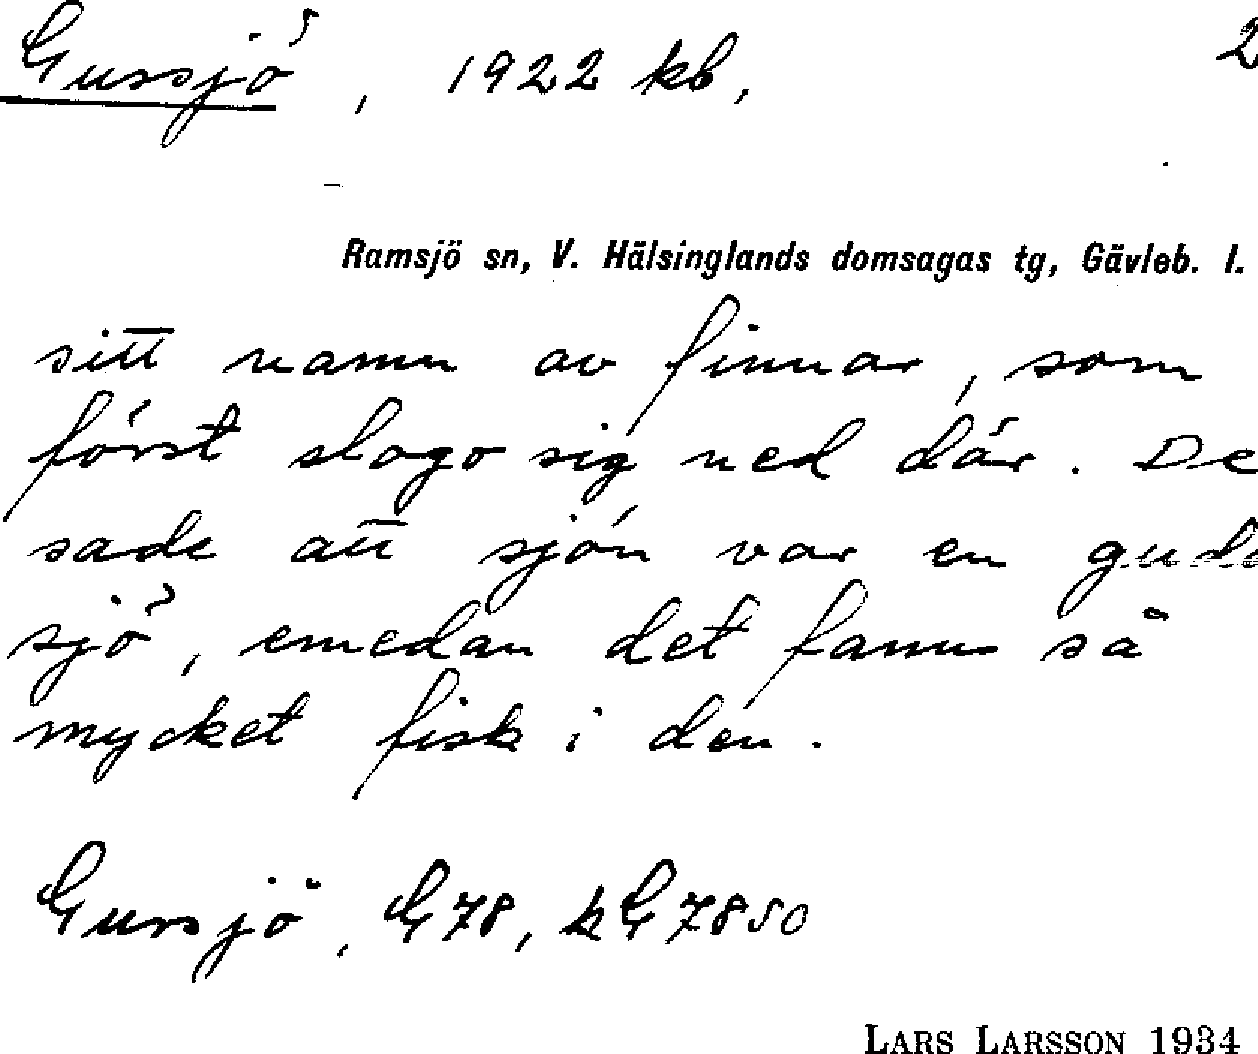 Gussjö, 1922 kb, 2
Ramsjö sn, V. Hälsinglands domsagas tg, Gävleb. l.
sitt namn av finnar, som
först slogo sig ned där. De
sade att sjön var en guda
sjö, emedan det fanns så
mycket fisk i den.
Gussjö, G78, kG7850
LARS LARSSON 1934